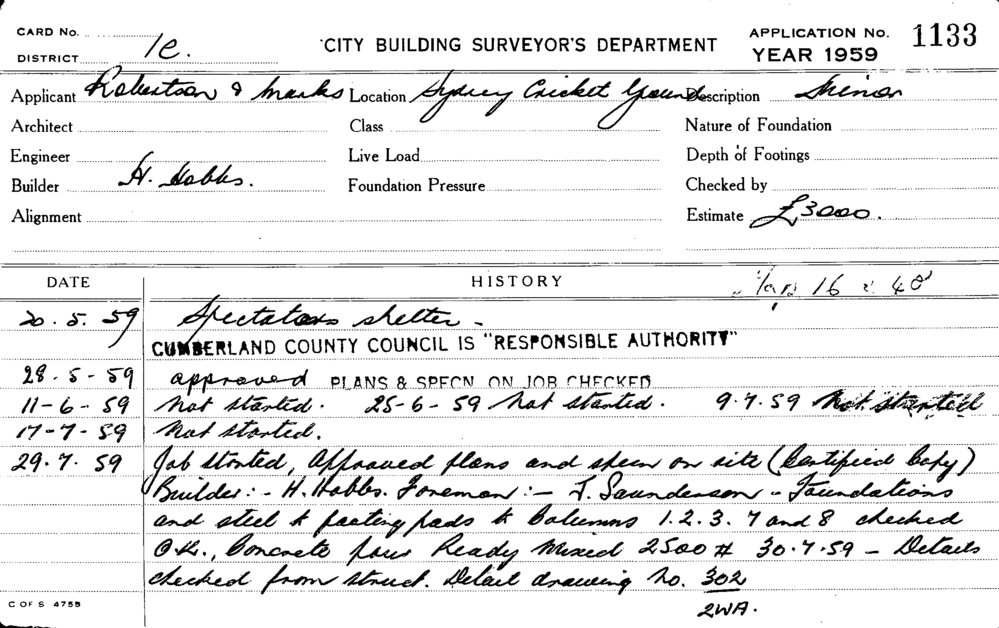 CARD No.
DISTRICT 1c.
CITY BUILDING SURVEYOR'S DEPARTMENT
APPLICATION No. 1133
YEAR 1959
Applicant Robertson & Marks Location Sydney Cricket Ground Description Minor
Architect Class Nature of Foundation
Engineer Live Load Depth of Footings
Builder H. Hobbs. Foundation Pressure Checked by
Alignment Estimate £3000.
DATE HISTORY 16 48
20.5.59 Spectators shelter -
CUMBERLAND COUNTY COUNCIL IS "RESPONSIBLE AUTHORITY"
28.5-59 approved PLANS & SPECN ON JOB CHECKED
11-6-59 Not started. 25-6-59 Not started. 9.7.59 Not started
17-7-59 Not started.
29.7.59 Job started, Approved plans and specn on site (Certified Copy)
Builder:- H. Hobbs. Foreman:- J. Saunderson - Foundations
and steel to footing pads to Columns 1.2.3.7 and 8 checked
O.K., Concrete pour Ready Mixed 2500 # 30.7.59 - Details
checked from struct. Detail drawing No. 302
2WA.
C OF S 4755